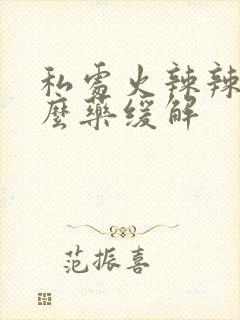 私處火辣辣
麼藥緩解
范振喜